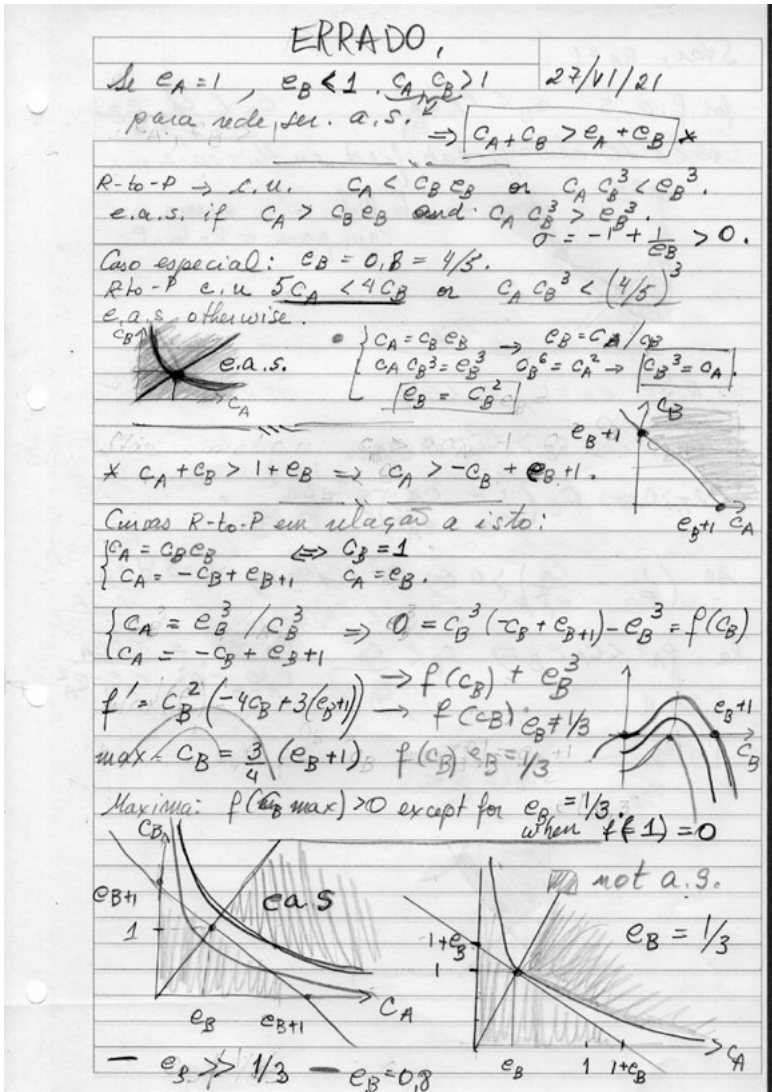 ERRADO,
Se e_A = 1, e_B < 1. c_A c_B > 1 27/VI/21
para rede ser a.s. ⇒ c_A + c_B > e_A + e_B *
R-to-P → c.u. c_A < c_B e_B or c_A c_B^3 < e_B^3.
e.a.s. if c_A > c_B e_B and c_A c_B^3 > e_B^3.
σ = -1 + 1/e_B > 0.
Caso especial: e_B = 0,8 = 4/5.
R-to-P c.u 5c_A < 4c_B or c_A c_B^3 < (4/5)^3
e.a.s otherwise.
c_B e.a.s. c_A
{ c_A = c_B e_B → e_B = c_A / c_B
c_A c_B^3 = e_B^3 c_B^6 = c_A^2 → c_B^3 = c_A.
e_B = c_B^2
c_B
e_B+1
* c_A + c_B > 1 + e_B ⇒ c_A > -c_B + e_B + 1.
e_B+1 c_A
Curvas R-to-P em relação a isto:
{ c_A = c_B e_B ⇔ c_B = 1
c_A = -c_B + e_B+1 c_A = e_B.
{ c_A = e_B^3 / c_B^3 ⇒ 0 = c_B^3 (-c_B + e_B+1) - e_B^3 = f(c_B)
c_A = -c_B + e_B+1
f' = c_B^2 (-4c_B + 3(e_B+1)) → f(c_B) + e_B^3
→ f(c_B) e_B ≠ 1/3
max c_B = 3/4 (e_B+1) f(c_B) e_B = 1/3
e_B+1 c_B
Maxima: f(c_B max) > 0 except for e_B = 1/3.
when f(1) = 0
c_B e_B+1 1 e.a.s e_B e_B+1 c_A
not a.s.
e_B = 1/3
1+e_B 1 e_B 1 1+e_B c_A
— e_B >> 1/3 — e_B = 0,8